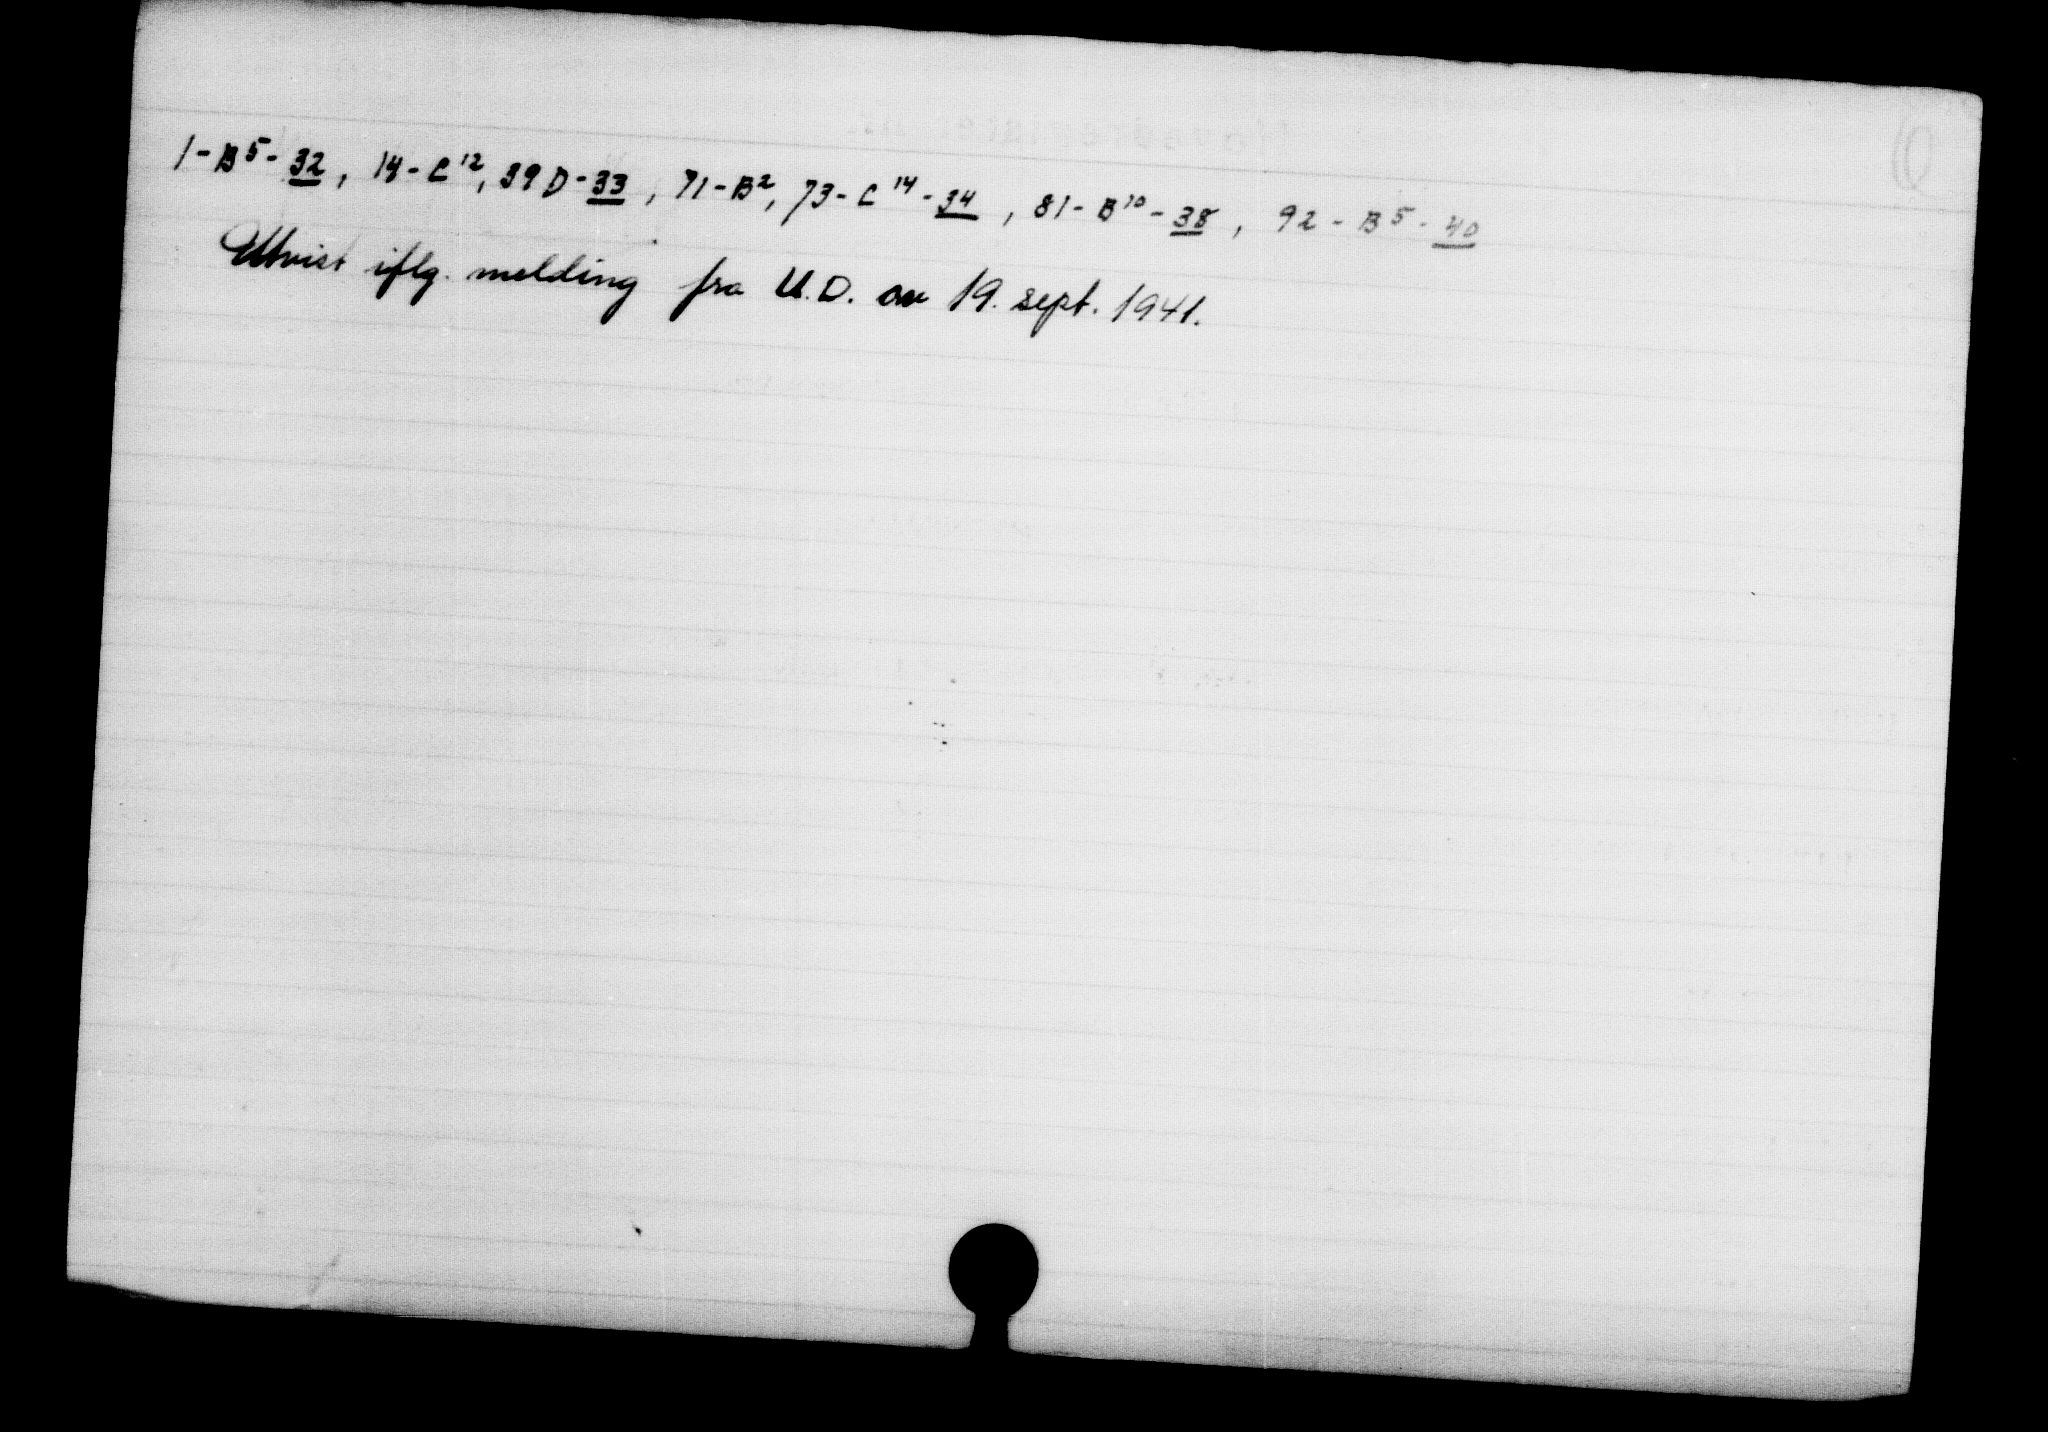 1-B⁵-32, 14-C¹², 39D-33, 71-B², 73-C¹⁴-34, 81-B¹⁰-38, 92-B⁵-40
Utvist iflg. melding fra U.D. av 19. sept. 1941.